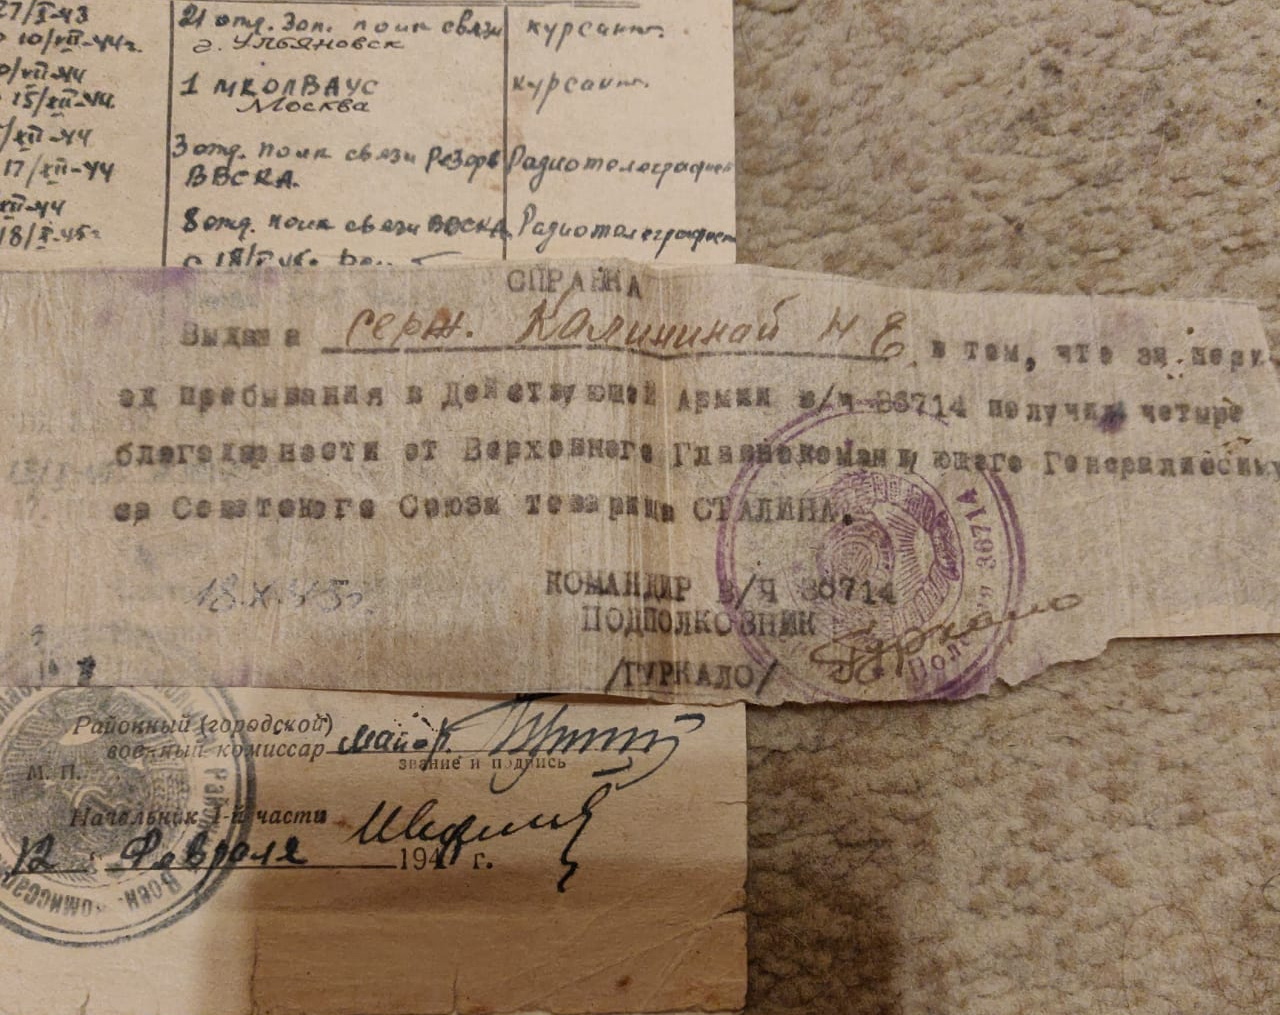 27/I-43
21 отд. Зап. полк связи
курсант.
10/VII-44г.
г. Ульяновск
VII-44
1 МКОЛВАУС
курсант.
15/XII-44
Москва
XII-44
3 отд. полк связи Резерв
Радиотелеграфист
17/XII-44
ВВСКА.
XII-44
8 отд. полк связи ВВСКА
Радиотелеграфист
18/I-45г
с 18/I 45г
СПРАВКА
Выдана серж. Калининой Н Е в том, что за пери
од пребывания в Действующей Армии в/ч 36714 получил четыре
благодарности от Верховного Главнокомандующего Генералиссиму
са Советского Союза товарища СТАЛИНА.
18.X.45г.
КОМАНДИР В/Ч 36714
ПОДПОЛКОВНИК
/ТУРКАЛО/
Туркало
Полевая 36714
Районный (городской)
военный комиссар майор.
звание и подпись
М. П.
Начальник 1-й части
12 Февраля 194 г.
Воен. Комиссар